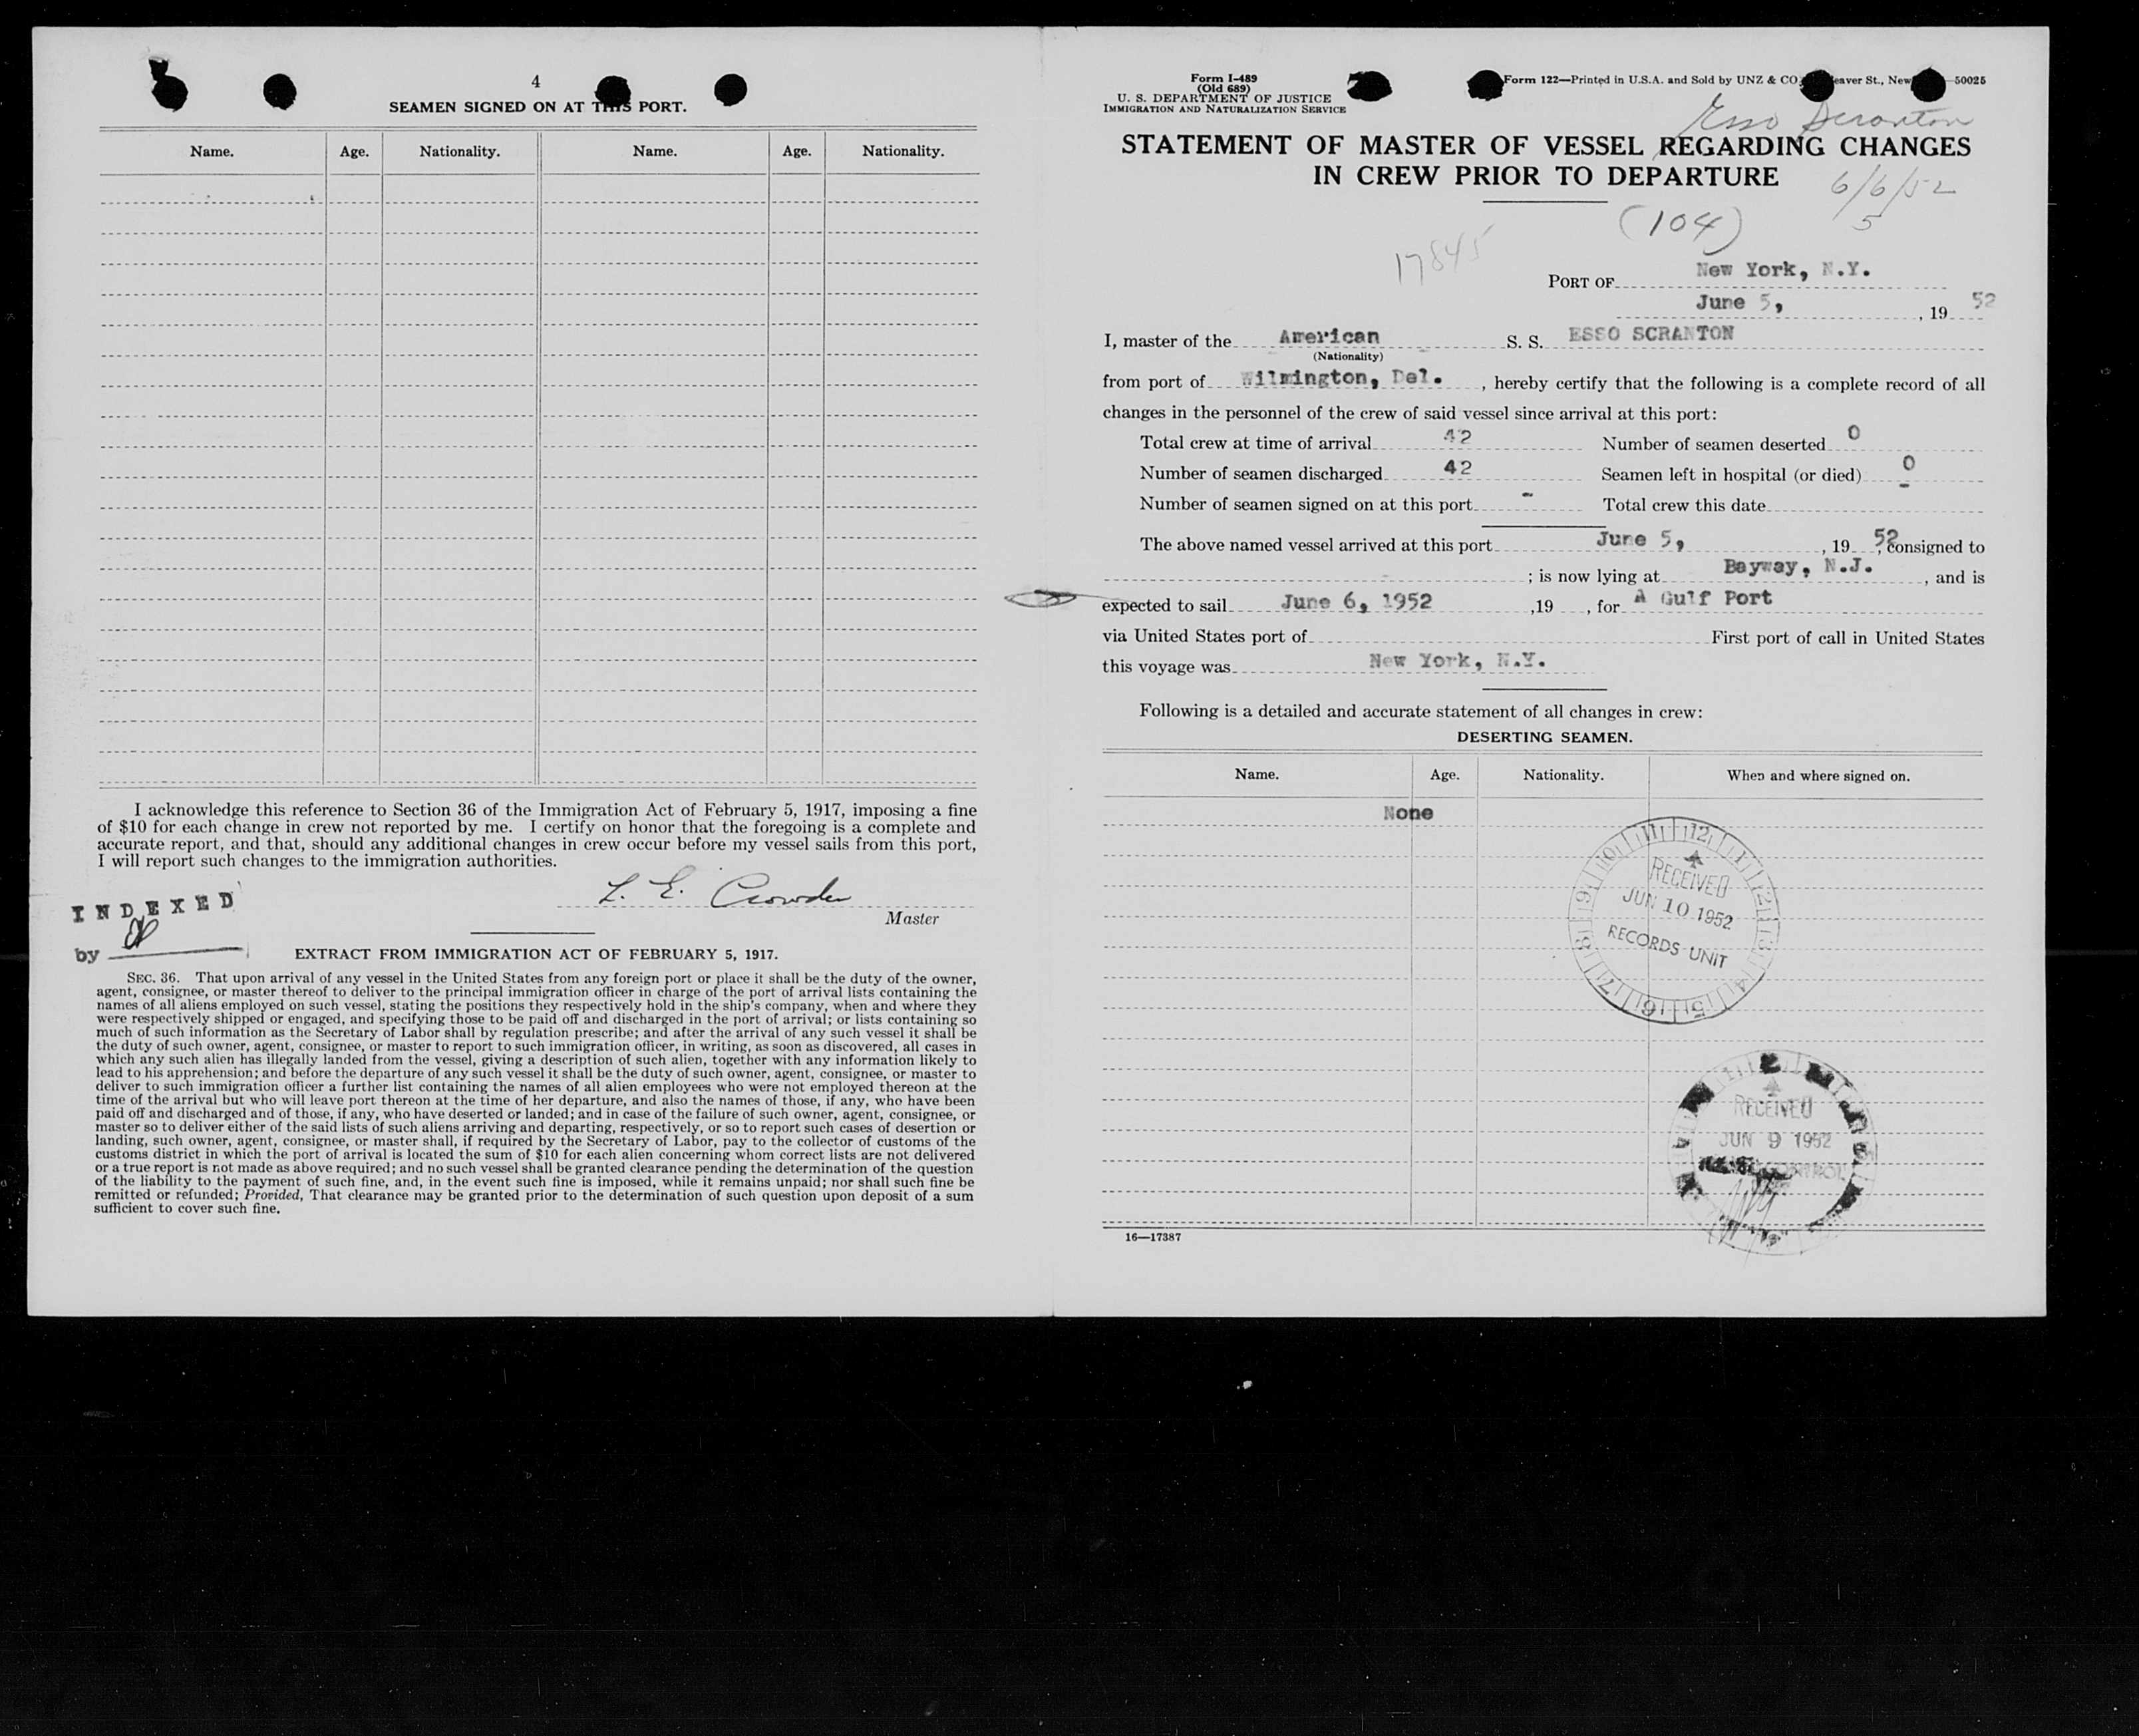 4
SEAMEN SIGNED ON AT THIS PORT.
Name. Age. Nationality. Name. Age. Nationality.
I acknowledge this reference to Section 36 of the Immigration Act of February 5, 1917, imposing a fine
of $10 for each change in crew not reported by me. I certify on honor that the foregoing is a complete and
accurate report, and that, should any additional changes in crew occur before my vessel sails from this port,
I will report such changes to the immigration authorities.
L. E. Crowder
Master
INDEXED
by
EXTRACT FROM IMMIGRATION ACT OF FEBRUARY 5, 1917.
SEC. 36. That upon arrival of any vessel in the United States from any foreign port or place it shall be the duty of the owner,
agent, consignee, or master thereof to deliver to the principal immigration officer in charge of the port of arrival lists containing the
names of all aliens employed on such vessel, stating the positions they respectively hold in the ship's company, when and where they
were respectively shipped or engaged, and specifying those to be paid off and discharged in the port of arrival; or lists containing so
much of such information as the Secretary of Labor shall by regulation prescribe; and after the arrival of any such vessel it shall be
the duty of such owner, agent, consignee, or master to report to such immigration officer, in writing, as soon as discovered, all cases in
which any such alien has illegally landed from the vessel, giving a description of such alien, together with any information likely to
lead to his apprehension; and before the departure of any such vessel it shall be the duty of such owner, agent, consignee, or master to
deliver to such immigration officer a further list containing the names of all alien employees who were not employed thereon at the
time of the arrival but who will leave port thereon at the time of her departure, and also the names of those, if any, who have been
paid off and discharged and of those, if any, who have deserted or landed; and in case of the failure of such owner, agent, consignee, or
master so to deliver either of the said lists of such aliens arriving and departing, respectively, or so to report such cases of desertion or
landing, such owner, agent, consignee, or master shall, if required by the Secretary of Labor, pay to the collector of customs of the
customs district in which the port of arrival is located the sum of $10 for each alien concerning whom correct lists are not delivered
or a true report is not made as above required; and no such vessel shall be granted clearance pending the determination of the question
of the liability to the payment of such fine, and, in the event such fine is imposed, while it remains unpaid; nor shall such fine be
remitted or refunded; Provided, That clearance may be granted prior to the determination of such question upon deposit of a sum
sufficient to cover such fine.
Form I-489
(Old 689)
U. S. DEPARTMENT OF JUSTICE
IMMIGRATION AND NATURALIZATION SERVICE
Form 122—Printed in U.S.A. and Sold by UNZ & CO. eaver St., New 50025
Esso Scranton
STATEMENT OF MASTER OF VESSEL REGARDING CHANGES
IN CREW PRIOR TO DEPARTURE
6/6/52
5
(104)
17845
PORT OF New York, N.Y.
June 5, , 19 52
I, master of the American S. S. ESSO SCRANTON
(Nationality)
from port of Wilmington, Del. , hereby certify that the following is a complete record of all
changes in the personnel of the crew of said vessel since arrival at this port:
Total crew at time of arrival 42 Number of seamen deserted 0
Number of seamen discharged 42 Seamen left in hospital (or died) 0
Number of seamen signed on at this port - Total crew this date -
The above named vessel arrived at this port June 5, , 19 52, consigned to
- ; is now lying at Bayway, N.J. , and is
expected to sail June 6, 1952 ,19 , for A Gulf Port
via United States port of First port of call in United States
this voyage was New York, N.Y.
Following is a detailed and accurate statement of all changes in crew:
DESERTING SEAMEN.
Name. Age. Nationality. When and where signed on.
None
11 12 1 2 3 4 5 6 7 8 9 10
RECEIVED
JUN 10 1952
RECORDS UNIT
RECEIVED
JUN 9 1952
CONTROL
16—17387